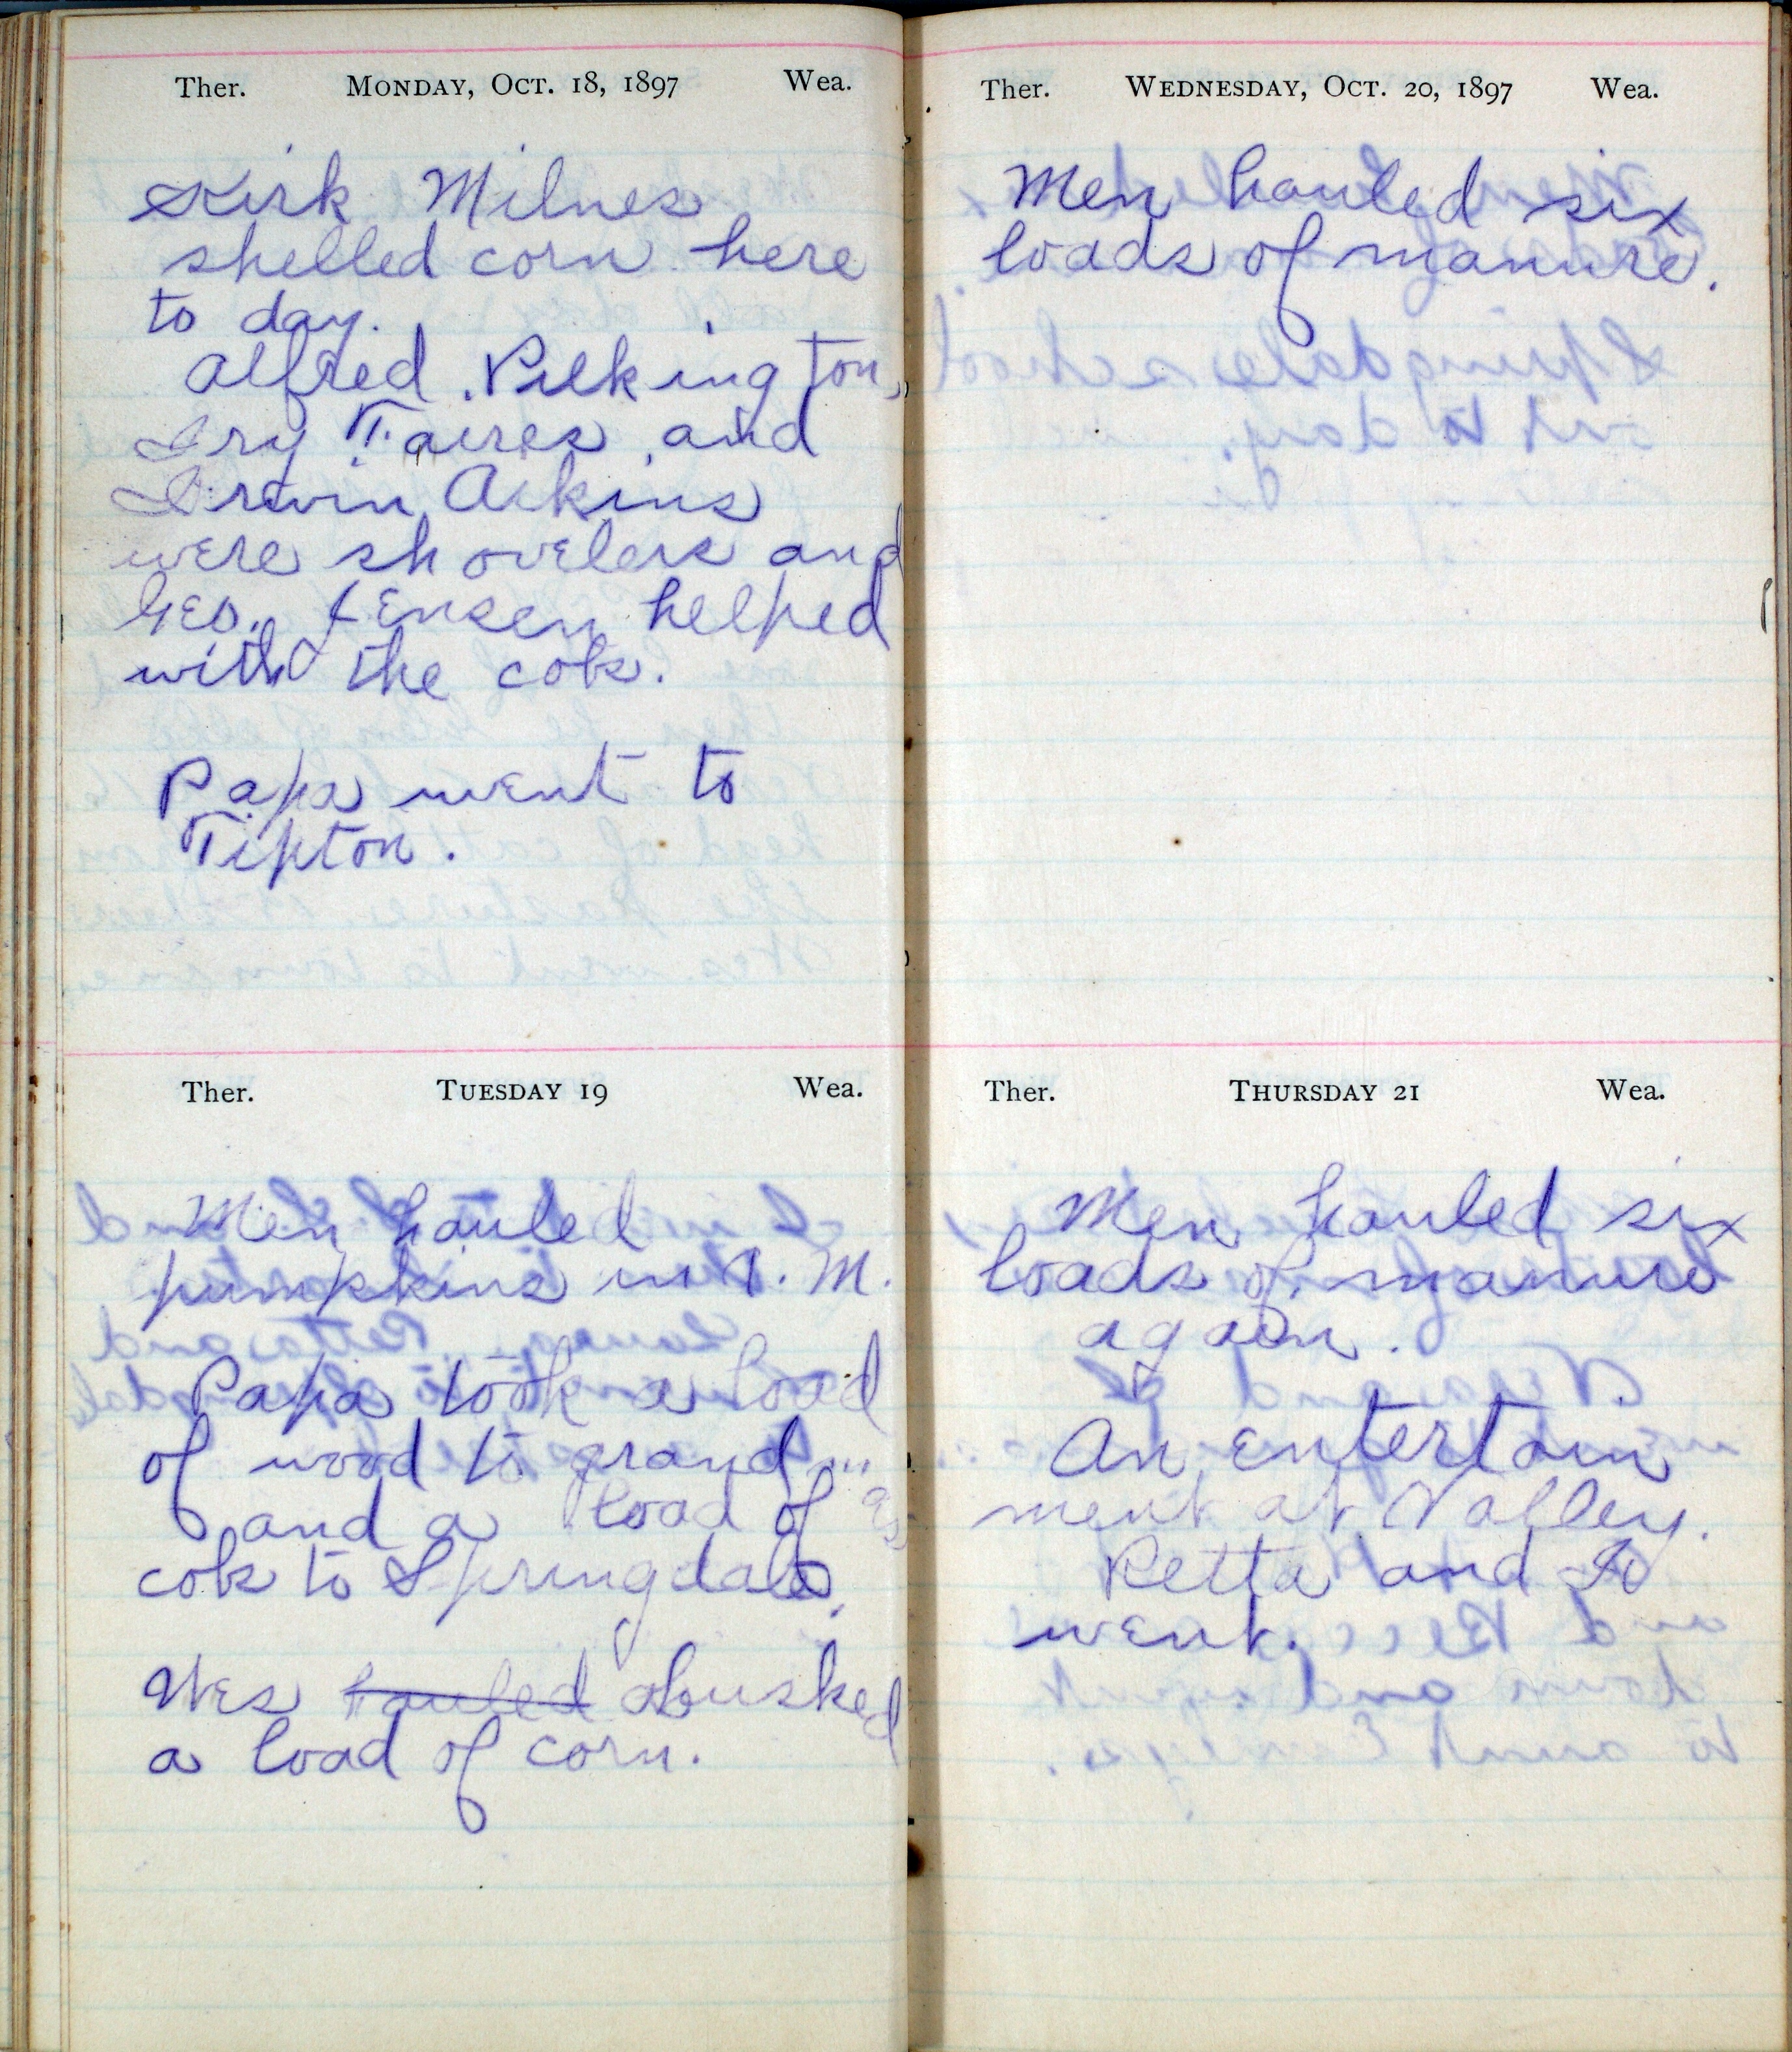 Ther. Monday, Oct. 18, 1897 Wea.
Kirk Milnes
shelled corn here
to day.
Alfred Pilkington,
Iry Faires and
Irwin Askins
were shovelers and
Geo. Jensen helped
with the cobs.
Papa went to
Tipton.
Ther. Tuesday 19 Wea.
Men hauled
pumpkins in P. M.
Papa took a load
of wood to grandmas
and a load of
cobs to Springdale.
Wes hauled husked
a load of corn.
Ther. Wednesday, Oct. 20, 1897 Wea.
Men hauled six
loads of manure.
Ther. Thursday 21 Wea.
Men hauled six
loads of manure
again.
An entertain
ment at Valley.
Retta and I
went.